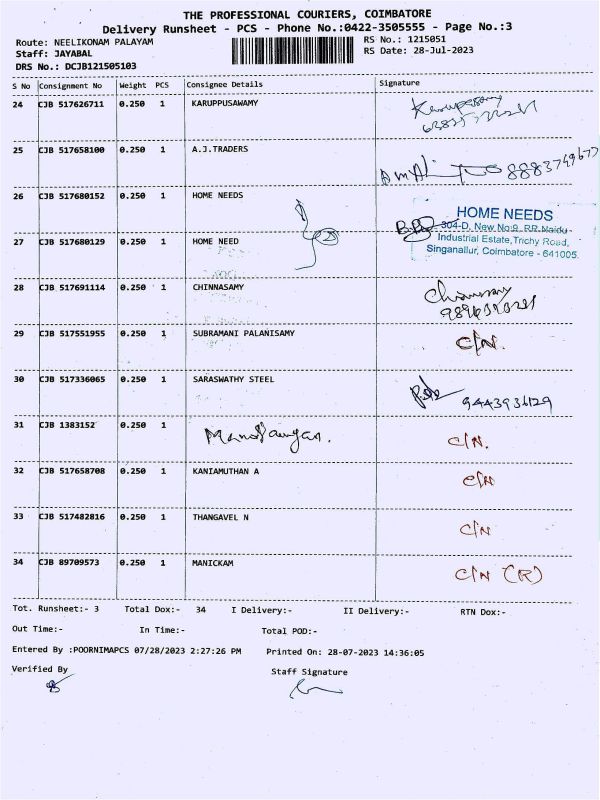 THE PROFESSIONAL COURIERS, COIMBATORE
Delivery Runsheet - PCS - Phone No.:0422-3505555 - Page No.:3
Route: NEELIKONAM PALAYAM
RS No.: 1215051
Staff: JAYABAL
RS Date: 28-Jul-2023
DRS No.: DCJB121505103
S No Consignment No Weight PCS Consignee Details Signature
24 CJB 517626711 0.250 1 KARUPPUSAWAMY
25 CJB 517658100 0.250 1 A.J.TRADERS 8883749677
26 CJB 517680152 0.250 1 HOME NEEDS
HOME NEEDS
304-D, New No:9, RR Naidu
Industrial Estate,Trichy Road,
Singanallur, Coimbatore - 641005.
27 CJB 517680129 0.250 1 HOME NEED
28 CJB 517691114 0.250 1 CHINNASAMY
29 CJB 517551955 0.250 1 SUBRAMANI PALANISAMY C/N.
30 CJB 517336065 0.250 1 SARASWATHY STEEL 9443936129
31 CJB 1383152 0.250 1 C/N.
32 CJB 517658708 0.250 1 KANIAMUTHAN A C/N
33 CJB 517482816 0.250 1 THANGAVEL N C/N
34 CJB 89709573 0.250 1 MANICKAM C/N (R)
Tot. Runsheet:- 3 Total Dox:- 34 I Delivery:- II Delivery:- RTN Dox:-
Out Time:- In Time:- Total POD:-
Entered By :POORNIMAPCS 07/28/2023 2:27:26 PM Printed On: 28-07-2023 14:36:05
Verified By Staff Signature